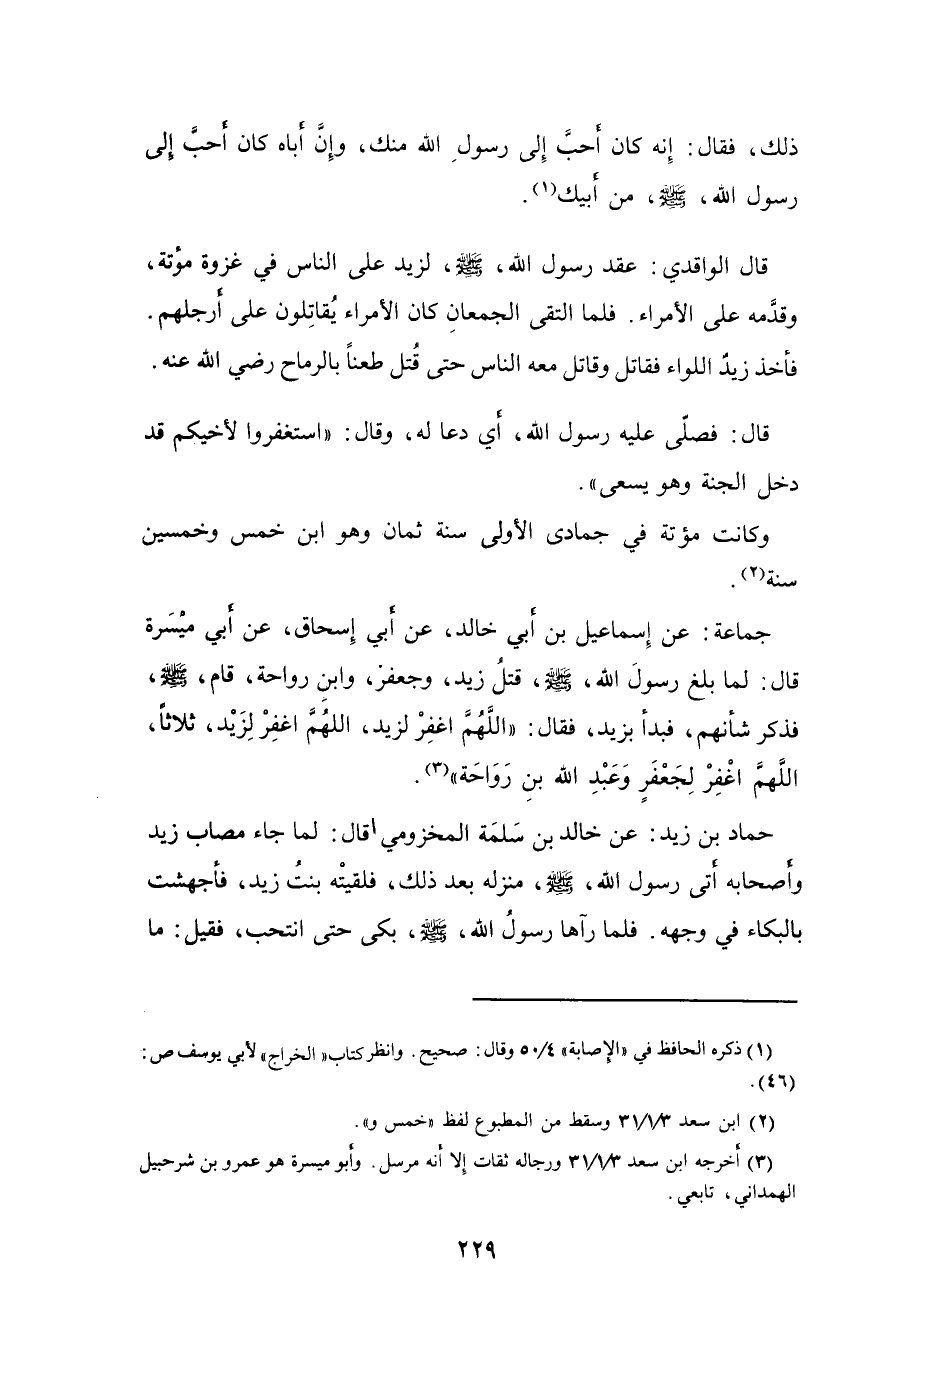 ذلك، فقال: إنه كان أَحبَّ إلى رسولِ الله منك، وإنَّ أَباه كان أَحبَّ إلى
رسول الله، ﷺ، من أَبيك(١).
قال الواقدي: عقد رسول الله، ﷺ، لزيد على الناس في غزوة مؤتة،
وقدَّمه على الأمراء. فلما التقى الجمعانِ كان الأمراء يُقاتِلون على أَرجلهم.
فأخذ زيدٌ اللواء فقاتل وقاتل معه الناس حتى قُتل طعناً بالرماح رضي الله عنه.
قال: فصلّى عليه رسول الله، أَي دعا له، وقال: «استغفروا لأخيكم قد
دخل الجنة وهو يسعى».
وكانت مؤتة في جمادى الأولى سنة ثمان وهو ابن خمس وخمسين
سنة(٢).
جماعة: عن إسماعيل بن أَبي خالد، عن أَبي إسحاق، عن أَبي ميْسَرة
قال: لما بلغ رسولَ الله، ﷺ، قتلُ زيد، وجعفر، وابنِ رواحة، قام، ﷺ،
فذكر شأنهم، فبدأ بزيد، فقال: «اللَّهُمَّ اغفِرْ لزيد، اللهُمَّ اغفِرْ لِزَيْد، ثلاثاً،
اللَّهمَّ اغْفِرْ لِجَعْفَرٍ وَعَبْدِ الله بنِ رَوَاحَة»(٣).
حماد بن زيد: عن خالد بن سَلمَة المخزومي قال: لما جاء مصاب زيد
وأَصحابه أَتى رسول الله، ﷺ، منزله بعد ذلك، فلقيتْه بنتُ زيد، فأجهشت
بالبكاء في وجهه. فلما رآها رسولُ الله، ﷺ، بكى حتى انتحب، فقيل: ما
(١) ذكره الحافظ في «الإصابة» ٥٠/٤ وقال: صحيح. وانظر كتاب «الخراج» لأبي يوسف ص:
(٤٦).
(٢) ابن سعد ٣١/١/٣ وسقط من المطبوع لفظ «خمس و».
(٣) أخرجه ابن سعد ٣١/١/٣ ورجاله ثقات إلا أنه مرسل. وأبو ميسرة هو عمرو بن شرحبيل
الهمداني، تابعي.
٢٢٩